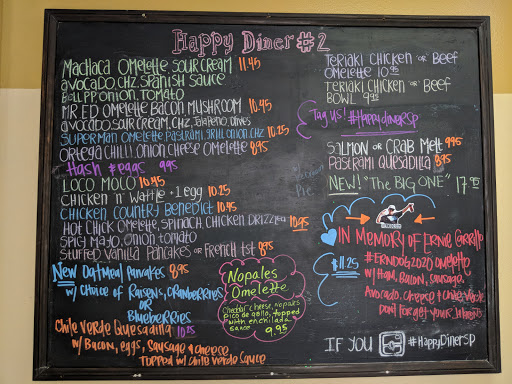 Happy Diner #2
Machaca Omelette sour cream 11.45
avocado, chz, spanish sauce
Bell pp onion, tomato
Mr Ed Omelette Bacon Mushroom 10.45
avocado, sour cream, chz, Jalapeño, chives
Superman Omelette Pastrami, grill onion, chz 10.25
Ortega Chili, onion, cheese omelette 8.95
Hash & eggs 9.95
Loco Moco 10.45
Chicken n' Waffle +1 egg 10.25
Chicken Country Benedict 10.45
Hot Chick Omelette, Spinach, Chicken Drizzled 10.95
Spicy Mayo, onion tomato
Stuffed Vanilla Pancakes or French tst 8.95
New Oatmeal Pancakes 8.95
w/ choice of Raisens, Cranberries
or
Blueberries
Chile Verde Quesadilla 10.25
w/ Bacon, eggs, Sausage & cheese
topped w/ Chile Verde Sauce
Nopales
Omelette
Cheddar cheese, nopales
pico de gallo, topped
with enchilada
sauce 9.95
Teriaki Chicken or Beef
Omelette 10.95
Teriaki Chicken or Beef
Bowl 9.95
Tag Us! #HappydinerSP
Salmon or Crab Melt 9.95
Pastrami Quesadilla 8.95
New! "The Big One" 17.95
In Memory of Ernie
$11.25
#Erndog2020 Omelette
w/ Ham, Bacon, Sausage,
Avocado, Cheese &
Don't forget your
If you #HappyDinerSP